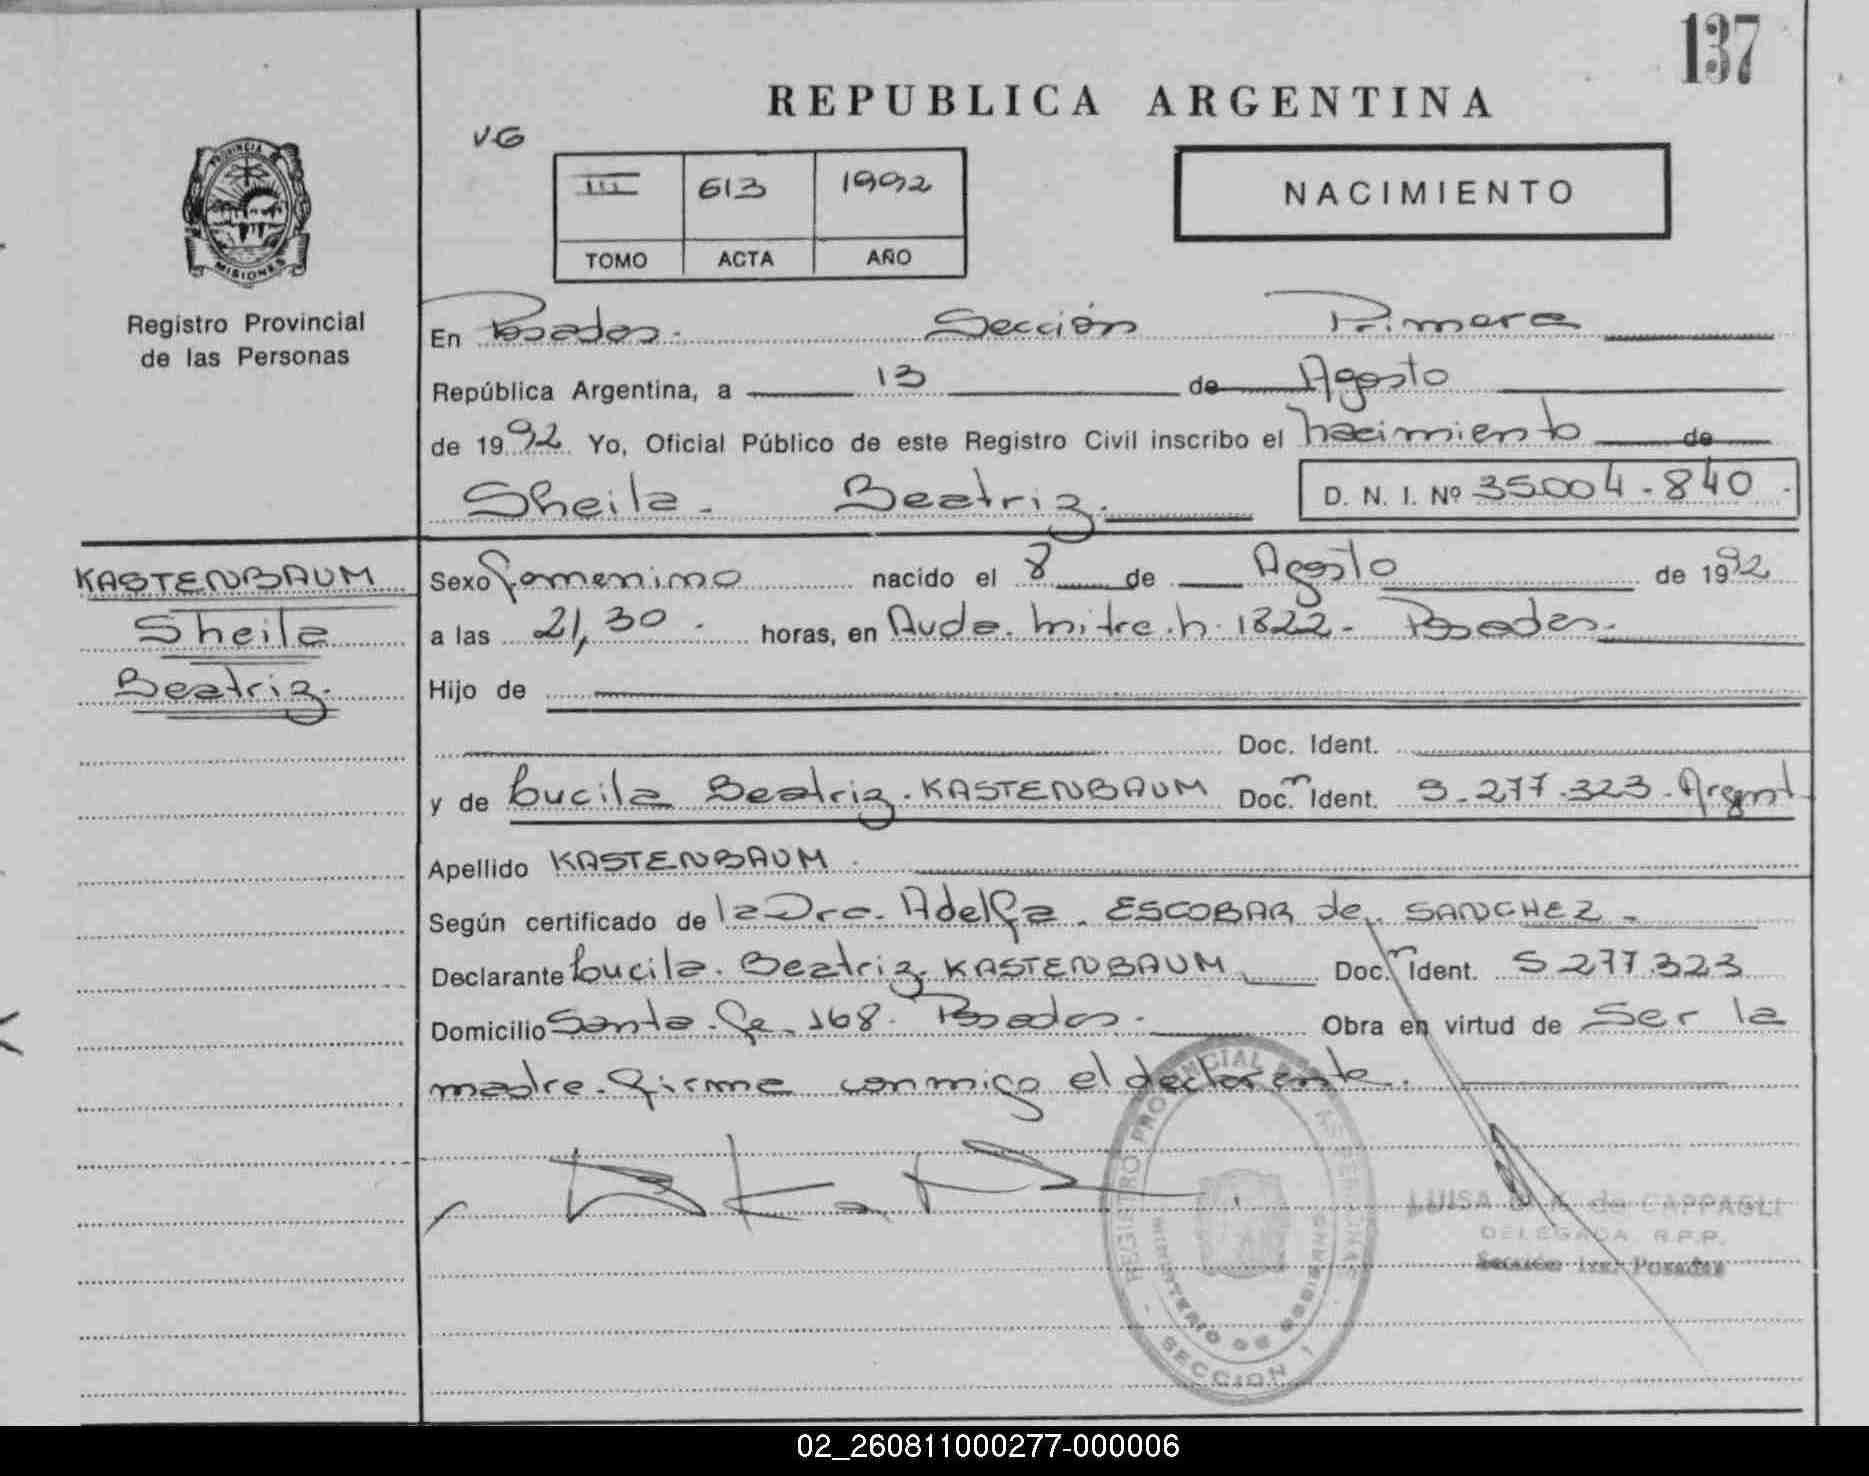 137
REPUBLICA ARGENTINA
VG
III 613 1992
TOMO ACTA AÑO
NACIMIENTO
PROVINCIA DE
MISIONES
Registro Provincial
de las Personas
En Posadas. Sección Primera
República Argentina, a 13 de Agosto
de 1992 Yo, Oficial Público de este Registro Civil inscribo el nacimiento de
Sheila. Beatriz. D. N. I. Nº 35004-840.
KASTENBAUM
Sheila
Beatriz.
Sexo femenino nacido el 8 de Agosto de 1992
a las 21,30. horas, en Avda. mitre. n. 1822. Posadas.
Hijo de
Doc. Ident.
y de Lucila Beatriz. KASTENBAUM Doc. Ident. 5.277.323. Argent
Apellido KASTENBAUM.
Según certificado de la Dra. Adelfa. ESCOBAR de. SANCHEZ.
Declarante Lucila. Beatriz. KASTENBAUM Doc. Ident. 5.277.323
Domicilio Santa. fe. 168. Posadas. Obra en virtud de Ser la
madre. firma conmigo el declarante.
REGISTRO PROVINCIAL DE LAS PERSONAS
MINISTERIO DE GOBIERNO
SECCION 1
LUISA de CAPPAGLI
DELEGADA R.P.P.
Sección 1ra. Posadas
02_260811000277-000006